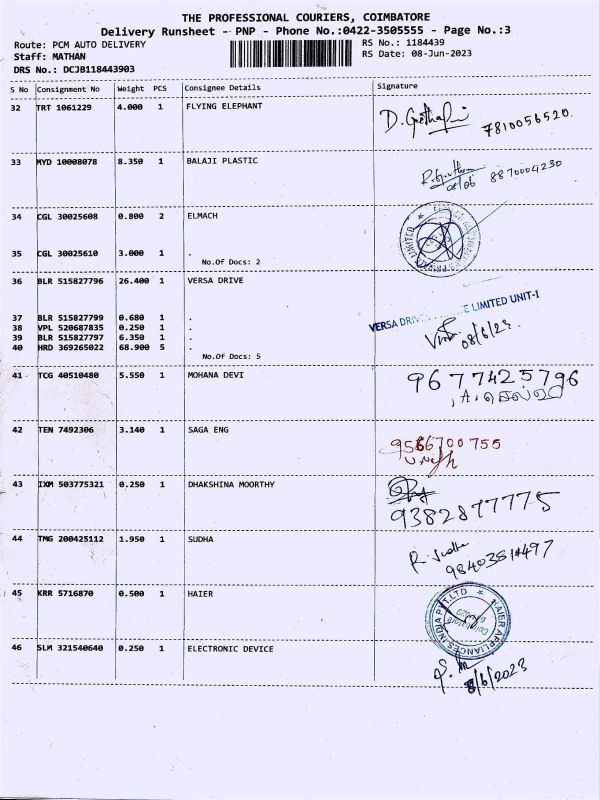 THE PROFESSIONAL COURIERS, COIMBATORE
Delivery Runsheet - PNP - Phone No.:0422-3505555 - Page No.:3
Route: PCM AUTO DELIVERY RS No.: 1184439
Staff: MATHAN RS Date: 08-Jun-2023
DRS No.: DCJB118443903
S No Consignment No Weight PCS Consignee Details Signature
32 TRT 1061229 4.000 1 FLYING ELEPHANT
7810056520.
33 MYD 10008078 8.350 1 BALAJI PLASTIC
08/06 8870004230
34 CGL 30025608 0.800 2 ELMACH
35 CGL 30025610 3.000 1 .
No.Of Docs: 2
36 BLR 515827796 26.400 1 VERSA DRIVE
37 BLR 515827799 0.680 1 .
38 VPL 520687835 0.250 1 .
39 BLR 515827797 6.350 1 .
40 HRD 369265022 68.900 5 .
No.Of Docs: 5
VERSA DRIVE LIMITED UNIT-I
08/6/23.
41 TCG 40510480 5.550 1 MOHANA DEVI
9677425796
42 TEN 7492306 3.140 1 SAGA ENG
9566700755
43 IXM 503775321 0.250 1 DHAKSHINA MOORTHY
9382877775
44 TMG 200425112 1.950 1 SUDHA
R. Sudha
45 KRR 5716870 0.500 1 HAIER
HAIER APPLIANCES INDIA PVT. LTD
46 SLM 321540640 0.250 1 ELECTRONIC DEVICE
8/6/2023